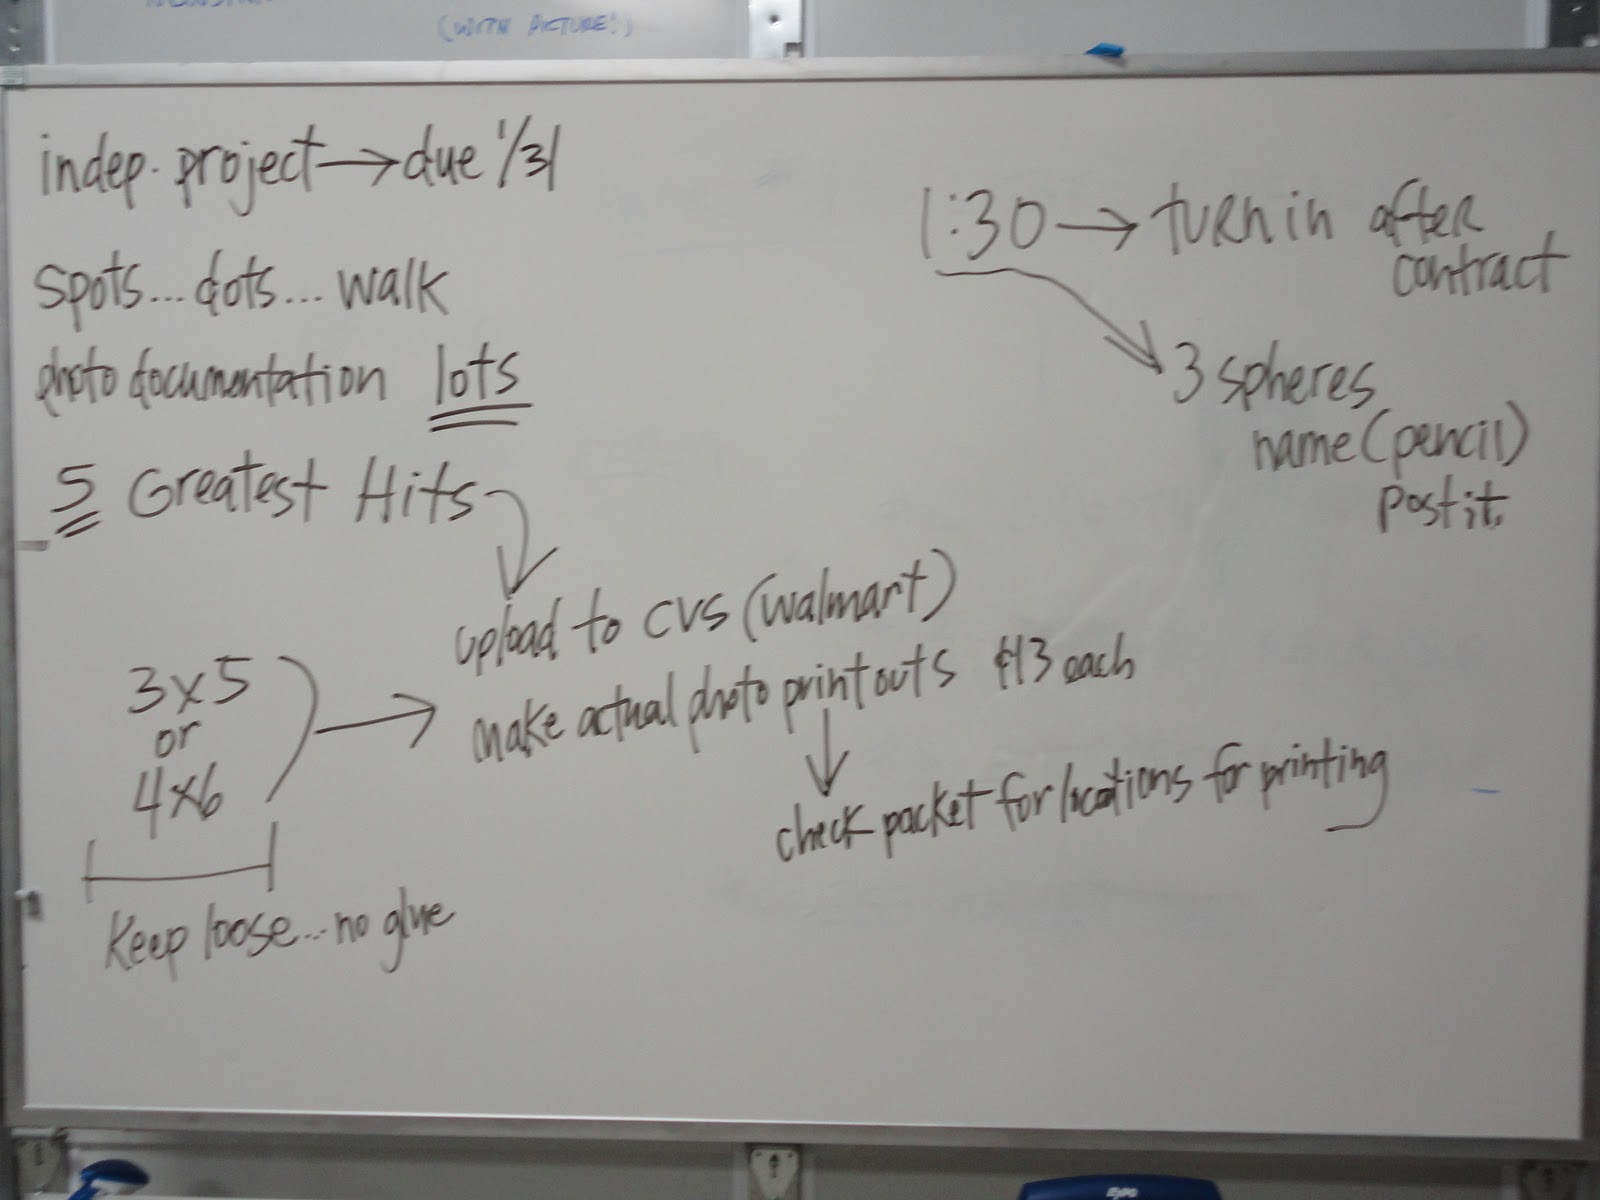 (WITH PICTURE!)
indep. project → due 1/31
spots... dots... walk
photo documentation lots
5 Greatest Hits
upload to CVS (Walmart)
make actual photo printouts ¢13 each
check packet for locations for printing
3x5
or
4x6
Keep loose... no glue
1:30 → turn in after
contract
3 spheres
name (pencil)
postit.
EXPO